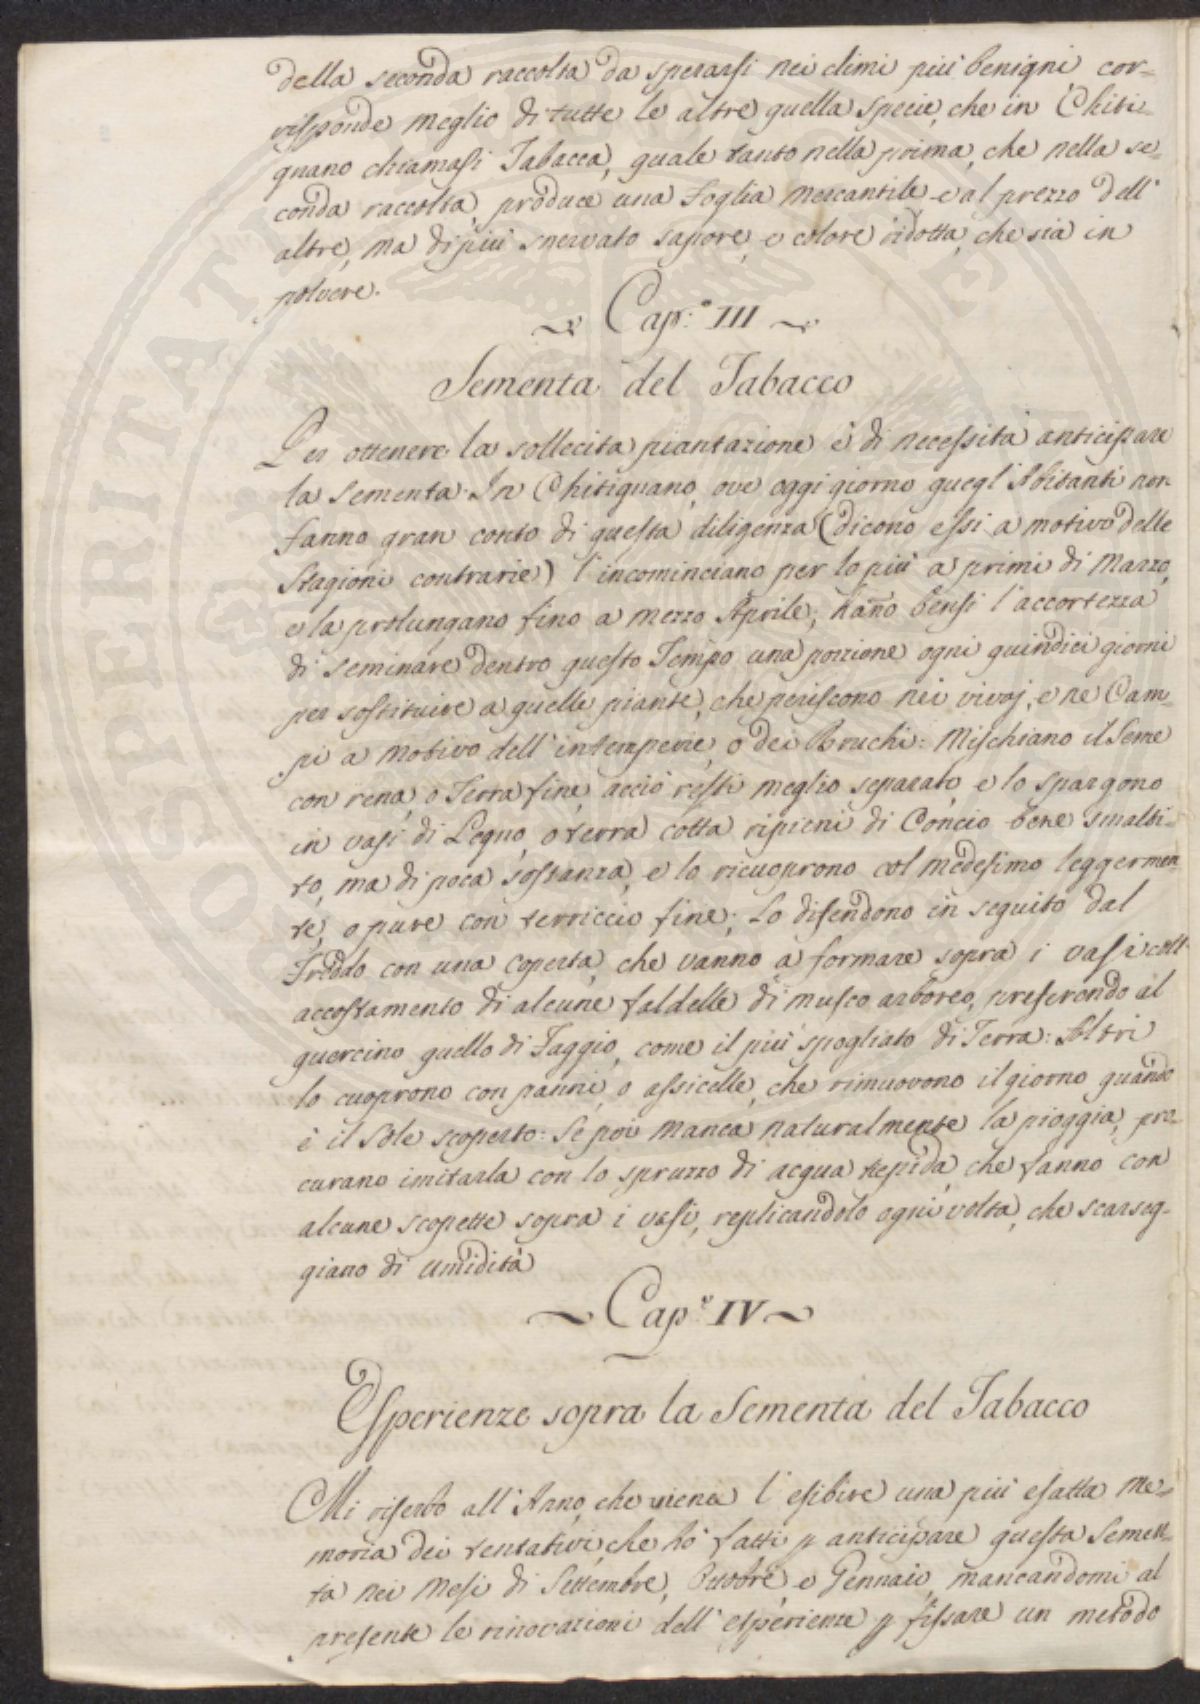 della seconda raccolta da sperarsi nei climi più benigni cor-
risponde meglio di tutte le altre quella specie, che in Chiti-
gnano chiamasi Tabacca, quale tanto nella prima, che nella se-
conda raccolta produce una Foglia mercantile e al prezzo dell'
altre, ma di più snervato sapore, e colore ridotta, che sia in
polvere.
Cap.o III
Sementa del Tabacco
Per ottenere la sollecita piantazione è di necessità anticipare
la Sementa. In Chitignano, ove oggi giorno quegl'Abitanti non
fanno gran conto di questa diligenza (dicono essi a motivo delle
Stagioni contrarie) l'incominciano per lo più a primi di Marzo,
e la prolungano fino a mezzo Aprile; hanno bensì l'accortezza
di seminare dentro questo Tempo una porzione ogni quindici giorni
per sostituire a quelle piante, che periscono nei vivaj, e ne Cam-
pi a motivo dell'intemperie, o dei Bruchi: Mischiano il Seme
con rena, o Terra fine, acciò resti meglio separato, e lo spargono
in vasi di Legno, o terra cotta ripieni di Concio bene smalti-
to, ma di poca sostanza, e lo ricuoprono col medesimo leggermen-
te, o pure con terriccio fine; Lo difendono in seguito dal
Freddo con una coperta, che vanno a formare sopra i vasi coll'
accostamento di alcune faldelle di musco arboreo, preferendo al
quercino quello di Faggio, come il più spogliato di Terra: Altri
lo cuoprono con panni, o assicelle, che rimuovono il giorno quando
è il Sole scoperto: Se poi manca naturalmente la pioggia, pro-
curano imitarla con lo spruzzo di acqua tepida, che fanno con
alcune scopette sopra i vasi, replicandolo ogni volta, che scarseg-
giano di umidità
Cap.o IV
Esperienze sopra la Sementa del Tabacco
Mi riserbo all'Anno, che viene l'esibire una più esatta Me-
moria dei tentativi, che hò fatti p anticipare questa Semen-
ta nei Mesi di Settembre, Ottobre, e Gennaio, mancandomi al
presente le rinovazioni dell'esperienze p fissare un metodo